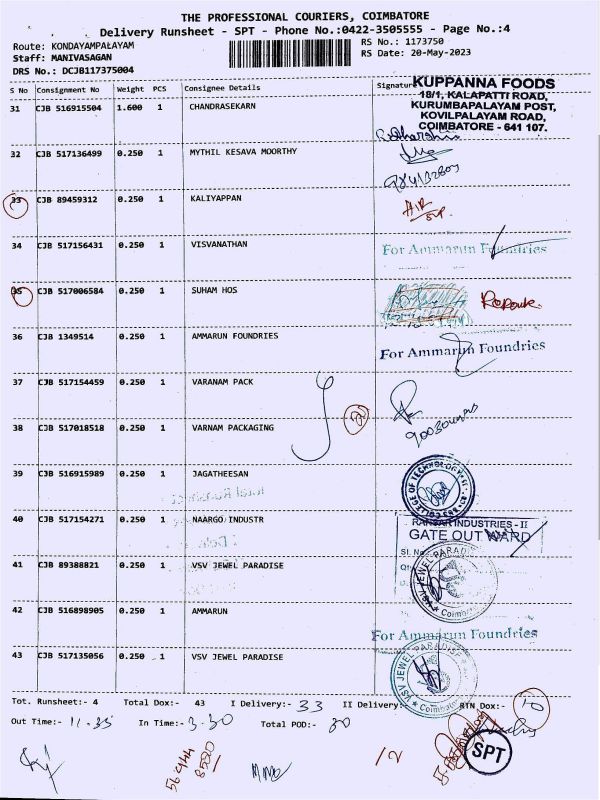 THE PROFESSIONAL COURIERS, COIMBATORE
Delivery Runsheet - SPT - Phone No.:0422-3505555 - Page No.:4
Route: KONDAYAMPALAYAM
RS No.: 1173750
Staff: MANIVASAGAN
RS Date: 20-May-2023
DRS No.: DCJB117375004
S No Consignment No Weight PCS Consignee Details Signature
KUPPANNA FOODS
18/1, KALAPATTI ROAD,
KURUMBAPALAYAM POST,
KOVILPALAYAM ROAD,
COIMBATORE - 641 107.
31 CJB 516915504 1.600 1 CHANDRASEKARN
32 CJB 517136499 0.250 1 MYTHIL KESAVA MOORTHY
33 CJB 89459312 0.250 1 KALIYAPPAN
34 CJB 517156431 0.250 1 VISVANATHAN
For Ammarun Foundries
35 CJB 517006584 0.250 1 SUHAM HOS
36 CJB 1349514 0.250 1 AMMARUN FOUNDRIES
For Ammarun Foundries
37 CJB 517154459 0.250 1 VARANAM PACK
38 CJB 517018518 0.250 1 VARNAM PACKAGING
39 CJB 516915989 0.250 1 JAGATHEESAN
COLLEGE OF TECHNOLOGY
40 CJB 517154271 0.250 1 NAARGO INDUSTR
INDUSTRIES - II
GATE OUT WARD
Sl. No.
41 CJB 89388821 0.250 1 VSV JEWEL PARADISE
VSV JEWEL PARADISE
Coimbatore
42 CJB 516898905 0.250 1 AMMARUN
For Ammarun Foundries
43 CJB 517135056 0.250 1 VSV JEWEL PARADISE
VSV JEWEL PARADISE
Coimbatore
Tot. Runsheet:- 4 Total Dox:- 43 I Delivery:- 33 II Delivery:- RTN Dox:- 10
Out Time:- 11.35 In Time:- 3.30 Total POD:- 30
SPT